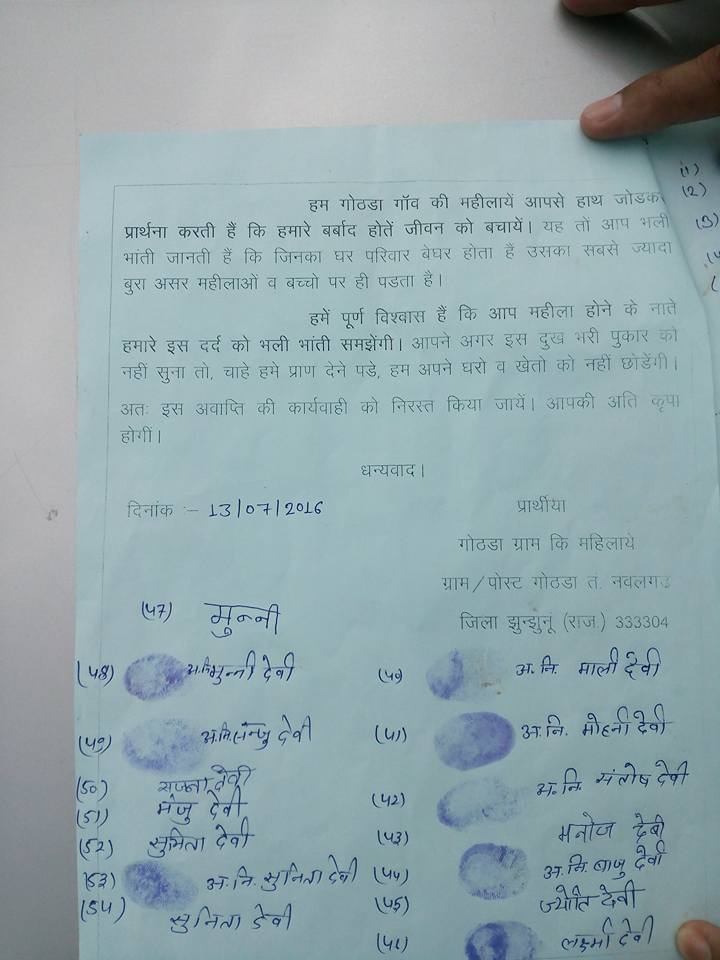 हम गोठडा गॉव की महीलायें आपसे हाथ जोडकर
प्रार्थना करती हैं कि हमारे बर्बाद होतें जीवन को बचायें। यह तों आप भली
भांती जानती हैं कि जिनका घर परिवार बेघर होता हैं उसका सबसे ज्यादा
बुरा असर महीलाओं व बच्चो पर ही पडता है।
हमें पूर्ण विश्वास हैं कि आप महीला होने के नाते
हमारे इस दर्द को भली भांती समझेंगी। आपने अगर इस दुख भरी पुकार को
नहीं सुना तो, चाहे हमे प्राण देने पडे, हम अपने घरो व खेतो को नहीं छोडेंगी।
अतः इस अवाप्ति की कार्यवाही को निरस्त किया जायें। आपकी अति कृपा
होगीं।
धन्यवाद।
दिनांक :– 13/07/2016
प्रार्थीया
गोठडा ग्राम कि महिलाये
ग्राम/पोस्ट गोठडा तं. नवलगढ
जिला झुन्झुनूं (राज.) 333304
(47) मुन्नी
(48) अ.नि. मुन्नी देवी
(49) अ.नि. मन्जु देवी
(50) देवी
(51) मंजु देवी
(52) सुमिता देवी
(53) अ.नि. सुनिता देवी
(54) सुनिता देवी
अ.नि. माली देवी
(41) अ.नि. मोहनी देवी
(42) अ.नि. संतोष देवी
(43) मनोज देवी
(44) अ.नि. बाजु देवी
(45) ज्योति देवी
लक्ष्मी देवी
(1)
(2)
(3)